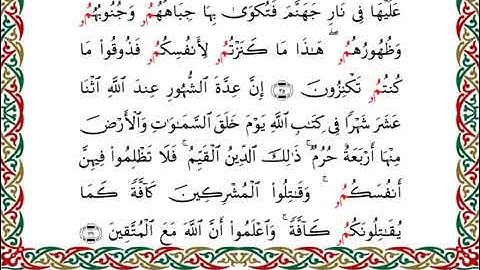 عَلَيْهَا فِي نَارِ جَهَنَّمَ فَتُكْوَىٰ بِهَا جِبَاهُهُمُۥ وَجُنُوبُهُمُۥ
وَظُهُورُهُمُۥ ۖ هَٰذَا مَا كَنَزْتُمُۥ لِأَنفُسِكُمُۥ فَذُوقُواْ مَا
كُنتُمُۥ تَكْنِزُونَ ۝٣٥ إِنَّ عِدَّةَ ٱلشُّهُورِ عِندَ ٱللَّهِ ٱثْنَا
عَشَرَ شَهْرًا فِي كِتَٰبِ ٱللَّهِ يَوْمَ خَلَقَ ٱلسَّمَٰوَٰتِ وَٱلْأَرْضَ
مِنْهَا أَرْبَعَةٌ حُرُمٌ ۚ ذَٰلِكَ ٱلدِّينُ ٱلْقَيِّمُ ۚ فَلَا تَظْلِمُواْ فِيهِنَّ
أَنفُسَكُمُۥ ۚ وَقَٰتِلُواْ ٱلْمُشْرِكِينَ كَآفَّةً كَمَا
يُقَٰتِلُونَكُمُۥ كَآفَّةً ۚ وَٱعْلَمُواْ أَنَّ ٱللَّهَ مَعَ ٱلْمُتَّقِينَ ۝٣٦